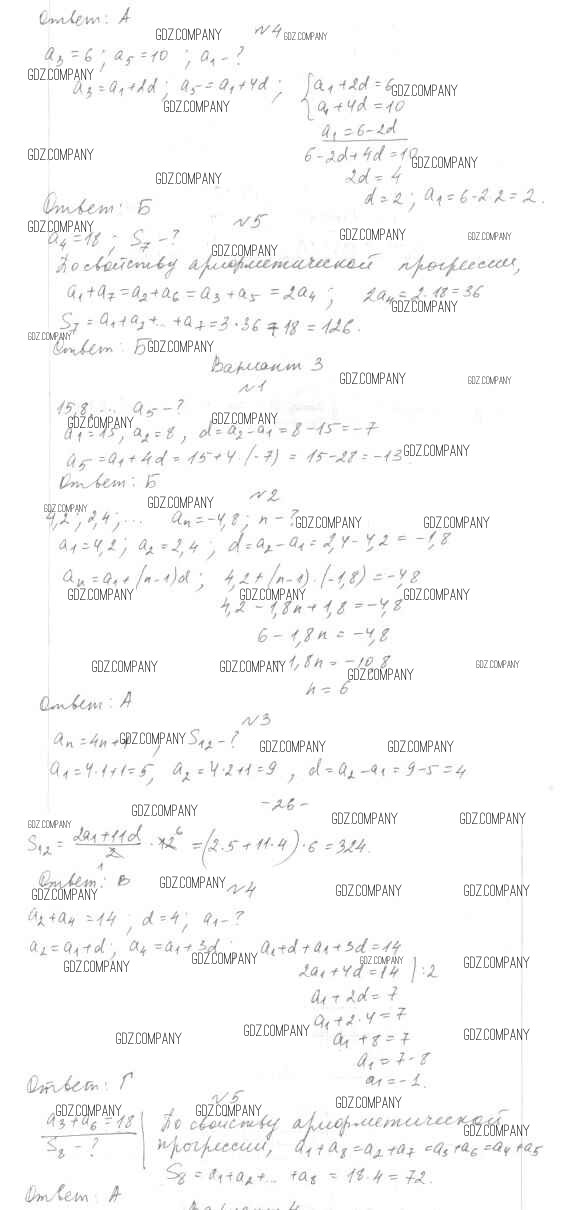 Ответ: А
№4
a₃=6; a₅=10; a₁-?
a₃=a₁+2d; a₅=a₁+4d; {a₁+2d=6
a₁+4d=10
a₁=6-2d
6-2d+4d=10
2d=4
d=2; a₁=6-2·2=2.
Ответ: Б
№5
a₄=18; S₇-?
По свойству арифметической прогрессии,
a₁+a₇=a₂+a₆=a₃+a₅=2a₄; 2a₄=2·18=36
S₇=a₁+a₂+...+a₇=3·36+18=126.
Ответ: Б
Вариант 3
№1
15,8,... a₅-?
a₁=15, a₂=8, d=a₂-a₁=8-15=-7
a₅=a₁+4d=15+4·(-7)=15-28=-13
Ответ: Б
№2
4,2; 2,4;... aₙ=-4,8; n-?
a₁=4,2; a₂=2,4; d=a₂-a₁=2,4-4,2=-1,8
aₙ=a₁+(n-1)d; 4,2+(n-1)·(-1,8)=-4,8
4,2-1,8n+1,8=-4,8
6-1,8n=-4,8
1,8n=-10,8
n=6
Ответ: А
№3
aₙ=4n+1, S₁₂-?
a₁=4·1+1=5, a₂=4·2+1=9, d=a₂-a₁=9-5=4
-26-
S₁₂=(2a₁+11d)/2·12=(2·5+11·4)·6=324.
Ответ: В
№4
a₂+a₄=14; d=4; a₁-?
a₂=a₁+d; a₄=a₁+3d; a₁+d+a₁+3d=14
2a₁+4d=14 |:2
a₁+2d=7
a₁+2·4=7
a₁+8=7
a₁=7-8
a₁=-1.
Ответ: Г
№5
a₃+a₆=18 | По свойству арифметической
S₈-? | прогрессии, a₁+a₈=a₂+a₇=a₃+a₆=a₄+a₅
S₈=a₁+a₂+...+a₈=18·4=72.
Ответ: А
GDZ.COMPANY